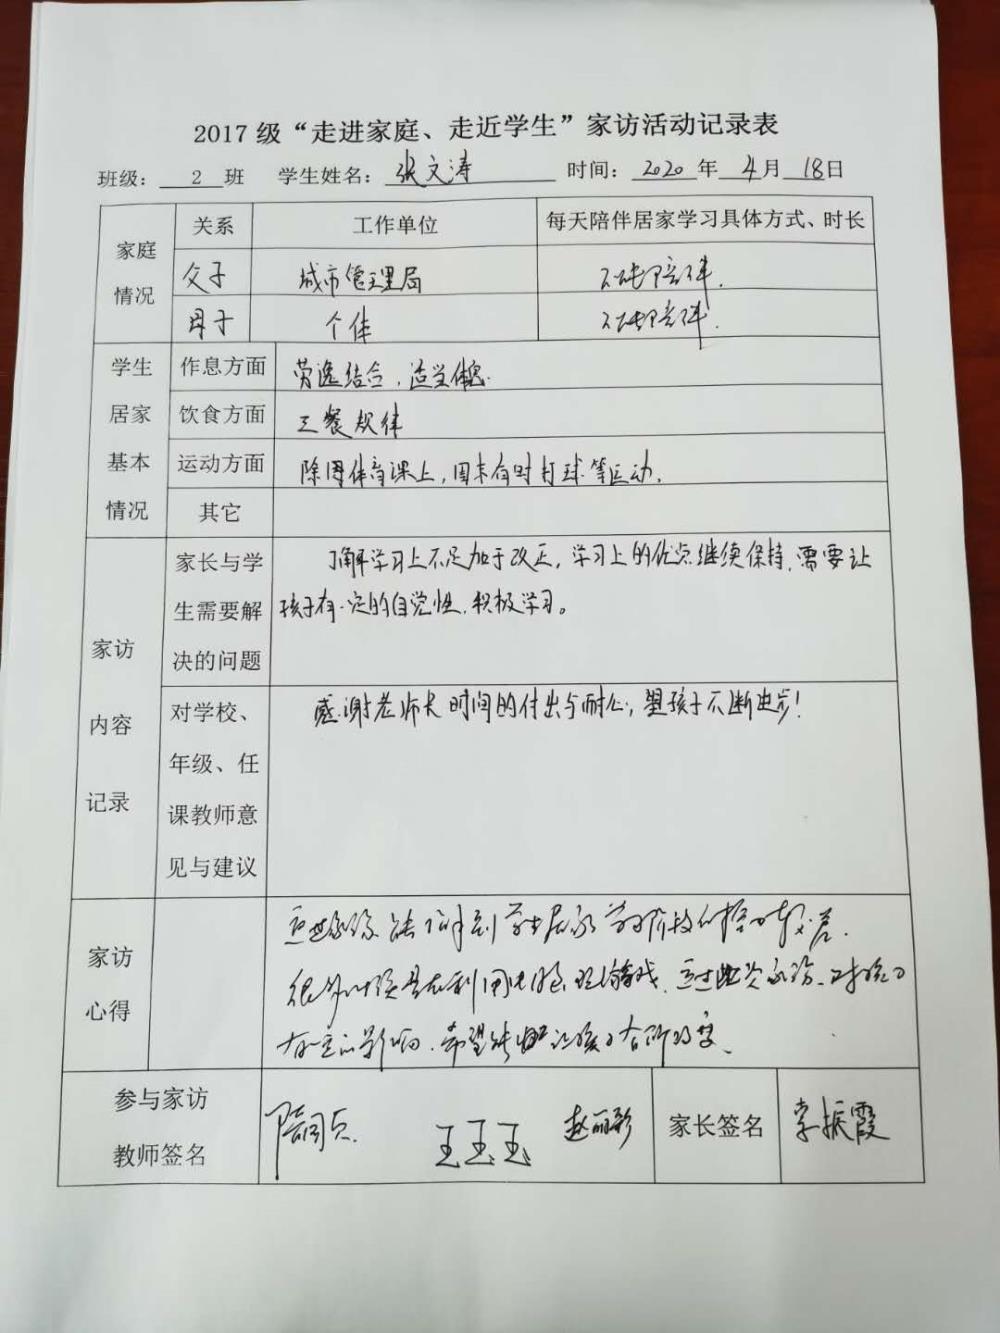 2017 级“走进家庭、走近学生”家访活动记录表
班级： 2 班 学生姓名：张文涛 时间：2020 年 4 月 18 日
家庭
情况
关系 工作单位 每天陪伴居家学习具体方式、时长
父子 城市管理局 不能陪伴.
母子 个体 不能陪伴.
学生
居家
基本
情况
作息方面 劳逸结合，适当休息.
饮食方面 三餐规律
运动方面 除周体育课上，周末有时打球等运动.
其它
家访
内容
记录
家长与学
生需要解
决的问题
了解学习上不足加于改正，学习上的优点继续保持，需要让
孩子有一定的自觉性，积极学习。
对学校、
年级、任
课教师意
见与建议
感谢老师长时间的付出与耐心，望孩子不断进步！
家访
心得
学习阶段
利用电脑 玩游戏
影响，希望能够让孩子有所改变
参与家访
教师签名
王玉玉 赵丽彩
家长签名 李振霞